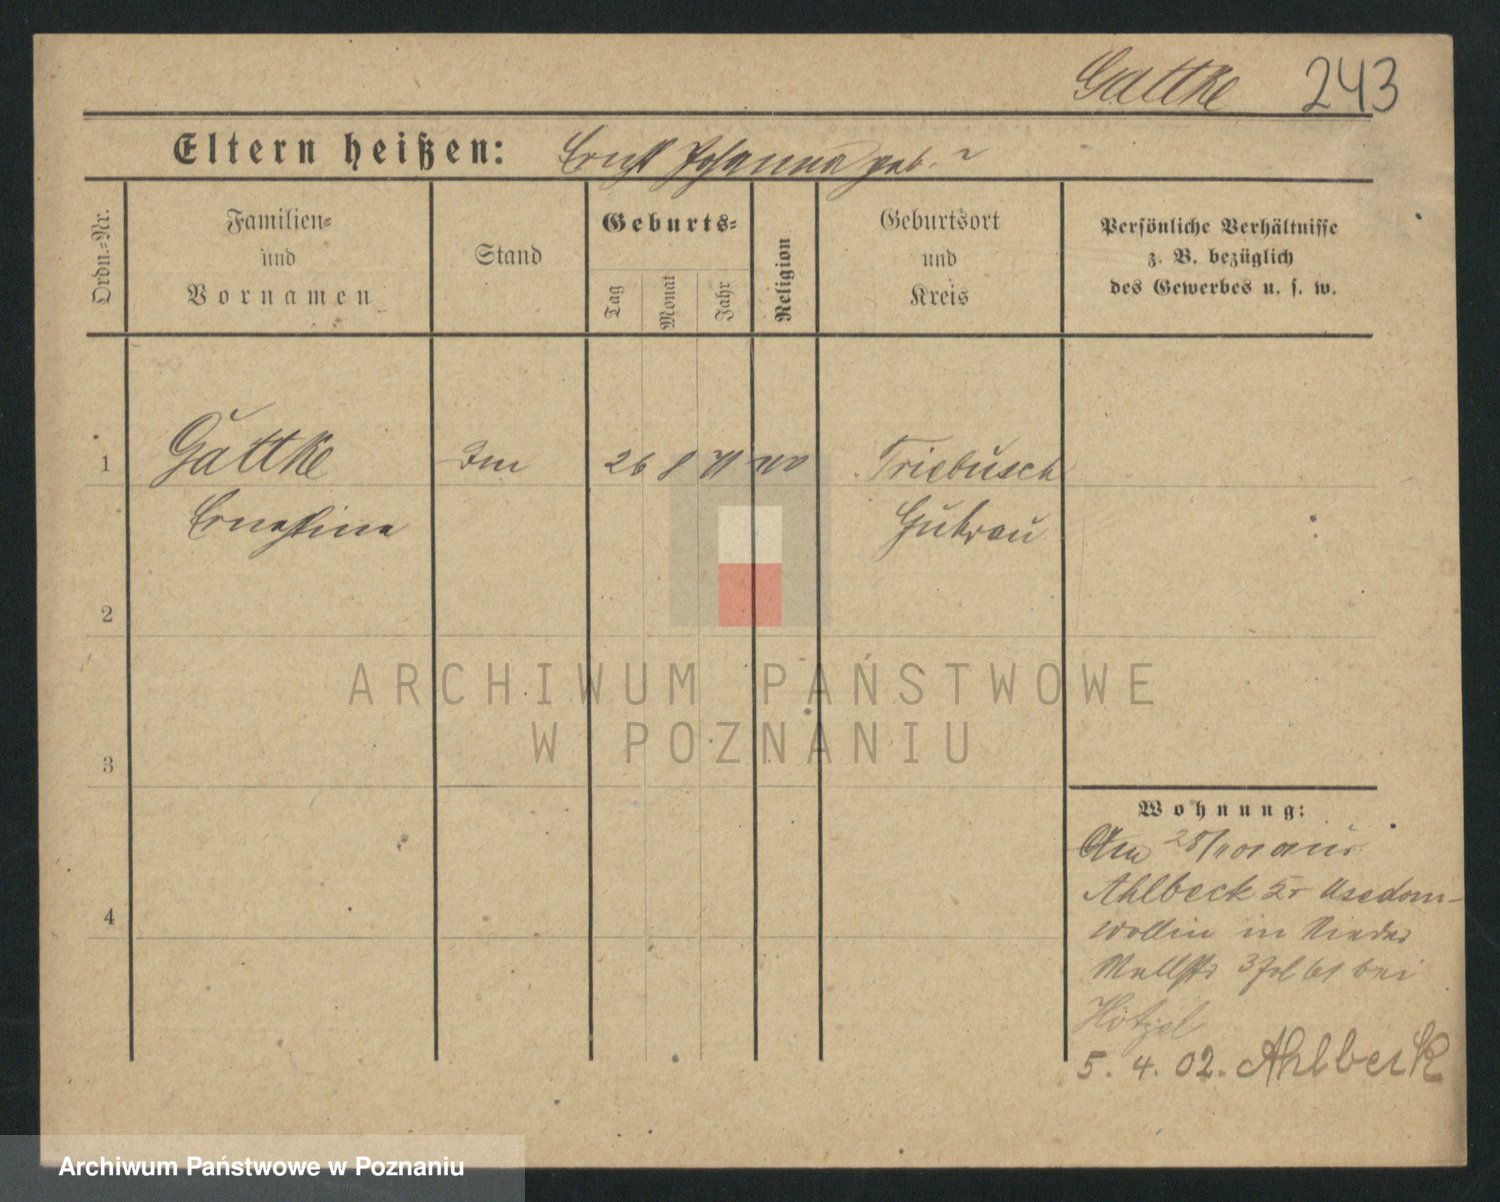 Gattke 243
Eltern heißen: Ernst Johanna geb. ?
Ordn.=Nr.
Familien=
und
Vornamen
Stand
Geburts=
Tag
Monat
Jahr
Religion
Geburtsort
und
Kreis
Persönliche Verhältnisse
z. B. bezüglich
des Gewerbes u. s. w.
1 Gattke 26 8 71 Triebusch
Ernestine Guhrau
2
3
4
ARCHIWUM PAŃSTWOWE
W POZNANIU
Wohnung:
Am 28/11 01 aus
Ahlbeck Kr Usedom-
Wollin in Nieder
bei
Hötzel
5. 4. 02. Ahlbeck
Archiwum Państwowe w Poznaniu